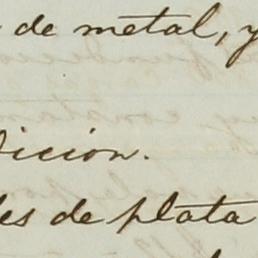 de metal, y
dicion.
les de plata